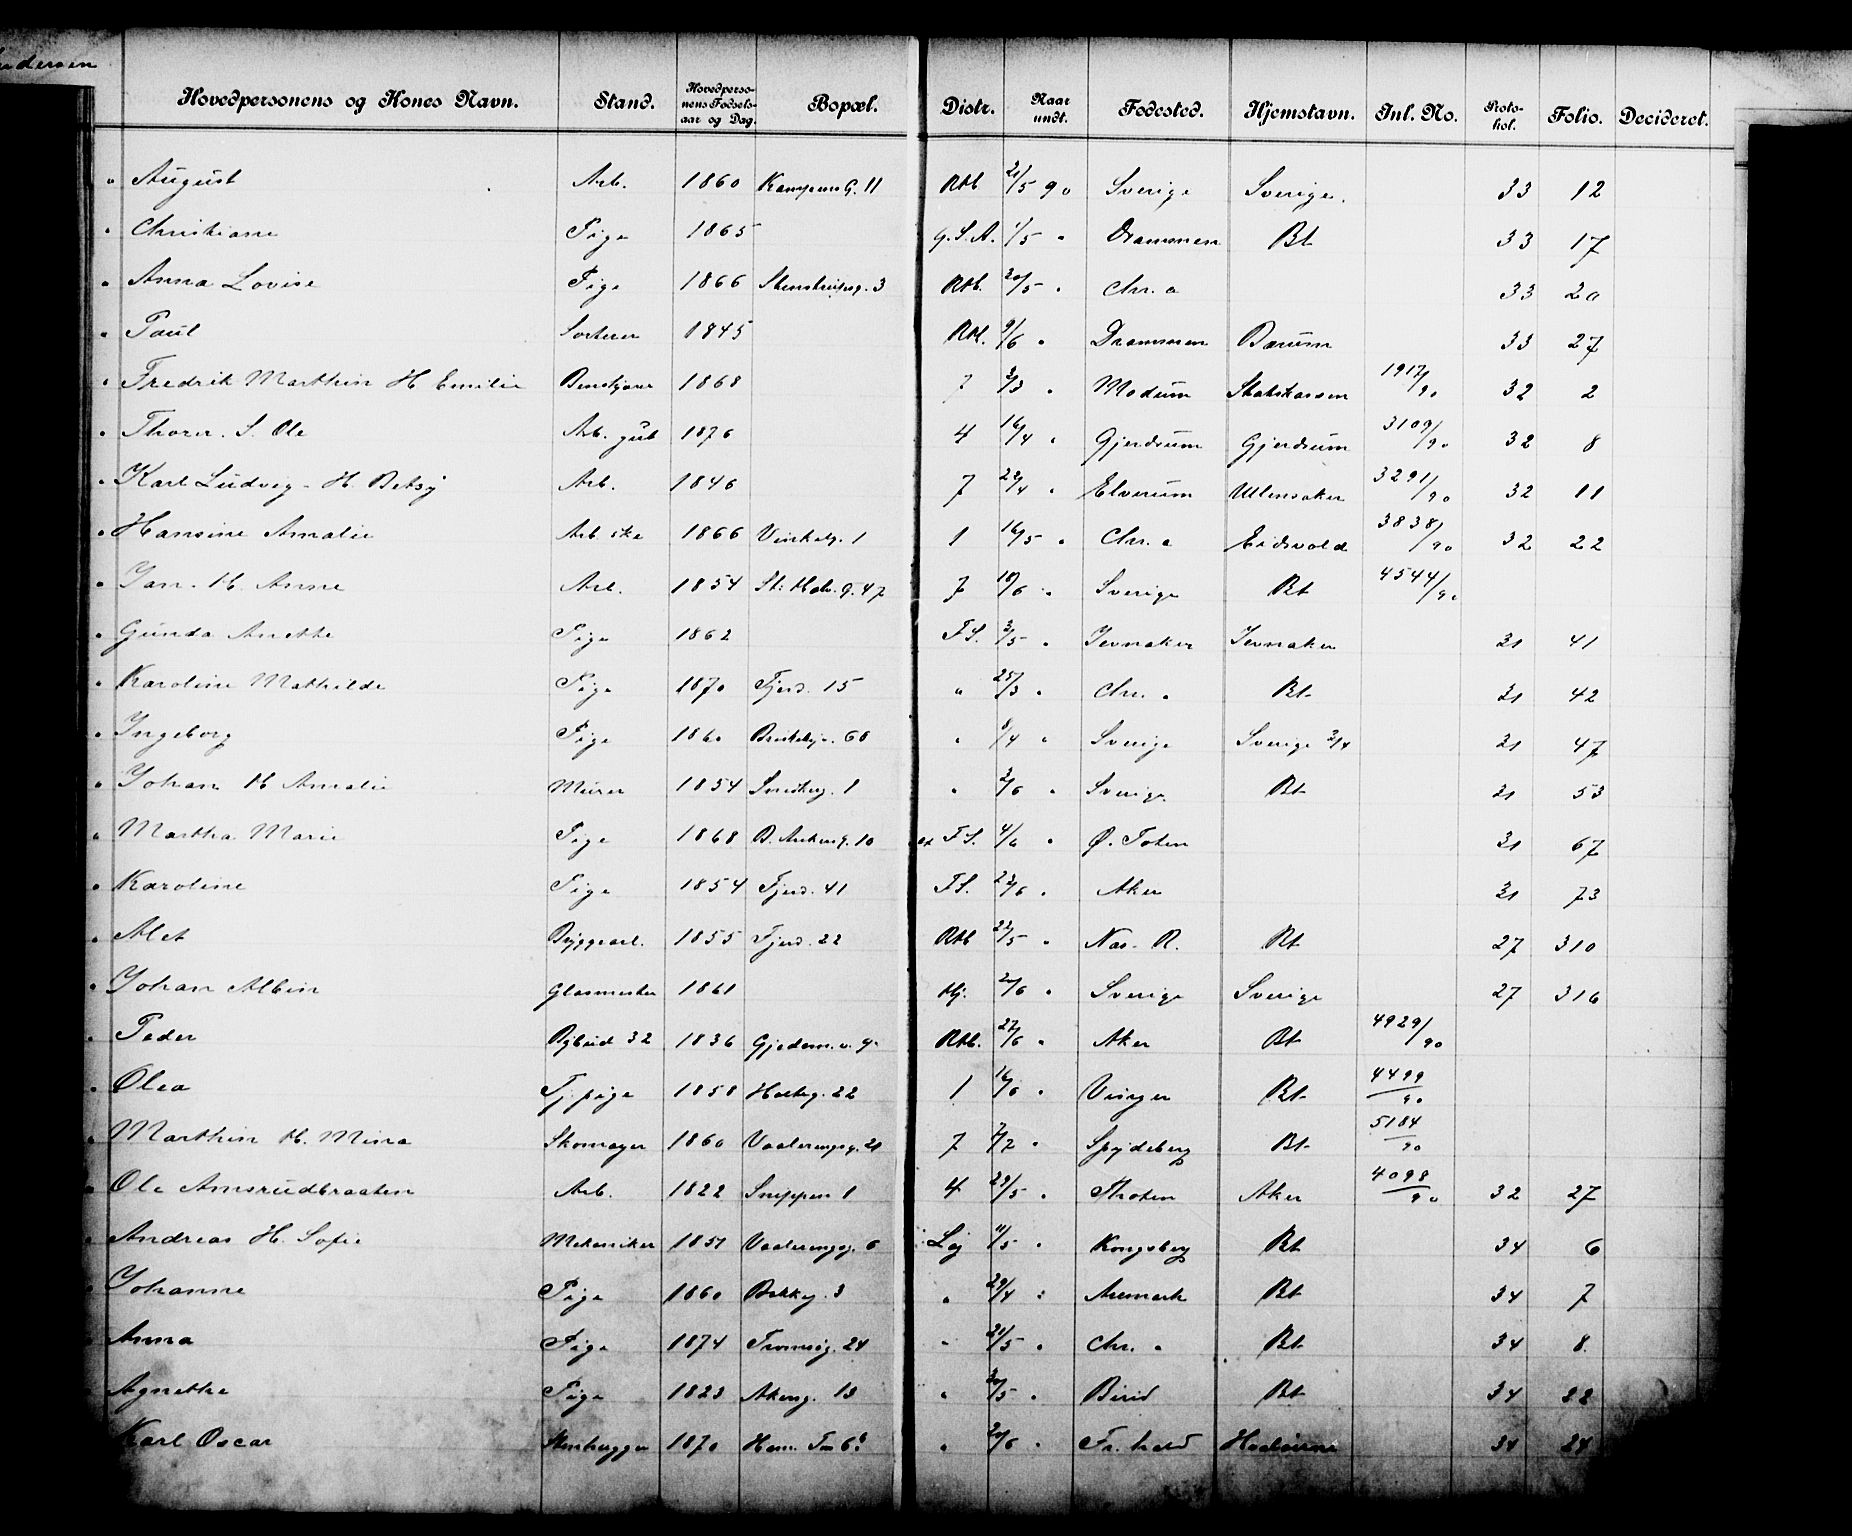 Andersen
Hovedpersonens og Kones Navn. Stand. Hovedperso-nens Fødsels-aar og Dag. Bopæl. Distr. Naar undt. Fødested. Hjemstavn. Inl. No. Proto-kol. Folio. Decideret.
" August Arb. 1860 Kampens G. 11 Rtb 21/5 90 Sverige Sverige. 33 12
" Christiane Pige 1865 G.S.A. 1/5 " Drammen Bt 33 17
" Anna Lovise Pige 1866 Stenstrupsg. 3 Rtb. 20/5 " Chr. a 33 20
" Paul Sorterer 1845 Rtb. 9/6 " Drammen Bærum 33 27
" Fredrik Marthin H Emilie 1868 7 3/3 " Modum Statskassen 1917/90 32 2
" Thorer. S. Ole Arb. gut 1876 4 16/4 " Gjerdrum Gjerdrum 3109/90 32 8
" Karl Ludvig - H. Betsy Arb. 1846 7 22/4 " Elverum Ullensaker 3291/90 32 11
" Hansine Amalie Arb ske 1866 Vinkelg. 1 1 16/5 " Chr. a Eidsvold 3838/90 32 22
" Jan. H. Anne Arb. 1854 St: Halv. g. 47 7 10/6 " Sverige Bt 4544/90
" Gunda Anette Pige 1862 F S. 3/5 " Jevnaker Jevnaker 31 41
" Karoline Mathilde Pige 1870 Fjerd. 15 " 25/3 " Chr. a Bt 31 42
" Ingeborg Pige 1860 66 " 8/4 " Sverige Sverige 3/4 31 47
" Johan H Amalie Murer 1854 Smedbg. 1 " 3/6 " Sverige Bt 31 53
" Martha Marie Pige 1868 10 F S. 4/6 " Ø. Toten 31 67
" Karoline Pige 1854 Fjerd. 41 F S. 23/6 " Aker 31 73
" Alet Byggearb. 1855 Fjerd. 22 Rtb 22/5 " Nas. R. Bt 27 310
" Johan Albin Glasmester 1861 Hj. 20/6 " Sverige Sverige 27 316
" Peder Bybud 32 1836 Gjedem. v. 9 Rtb. 27/6 " Aker Bt 4929/90
" Olea Tj. pige 1858 Holteg. 22 1 16/6 " Vinger Bt 4499/90
" Marthin H. Mina Skomager 1860 Vaalerengsg. 21 7 7/2 " Spydeberg Bt 5184/90
" Ole Amsrudbraaten Arb. 1822 Snippen 1 4 29/5 " Thoten Aker 4098/90 32 27
" Andreas H. Sofie Mekaniker 1851 Vaalerengsg. 6 Lg 11/5 " Kongsberg Bt 34 6
" Johanne Pige 1860 Bakkeg. 3 " 29/4 " Aremark Bt 34 7
" Anna Pige 1874 Tromsøg. 24 " 21/5 " Chr. a Bt 34 8
" Agnethe Pige 1823 Akersg. 13 " 30/5 " Birid Bt 34 22
Karl Oscar Stenhugger 1870 " 20/6 " Fr. hald 34 24